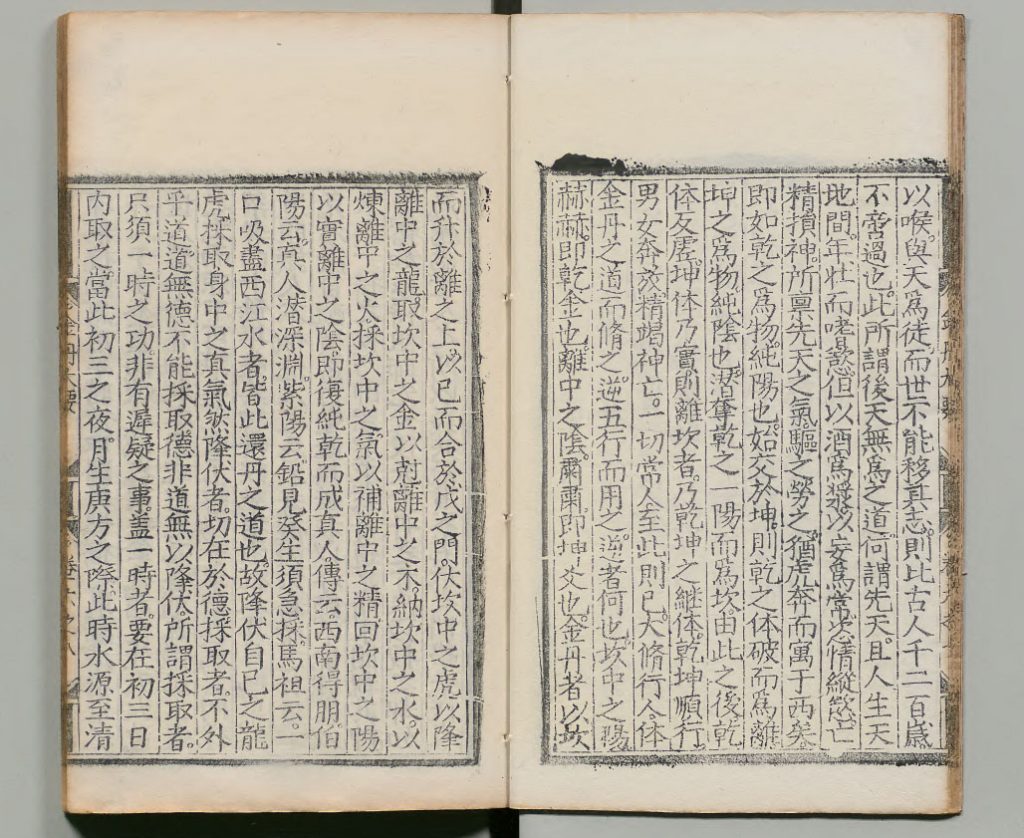 以喉與天爲徒。而世不能移其志。則比古人千二百歲
不啻過也。此所謂後天無爲之道。何謂先天。且人生天
地間。年壯而嗜慾。但以酒爲漿。以妄爲常。恣情縱慾。亡
精損神。所禀先天之氣。驅之勞之。猶虎奔而寓于西矣
即如乾之爲物。純陽也。始交於坤。則乾之体破而爲離
坤之爲物。純陰也。潜奪乾之一陽而爲坎。由此之後。乾
体反虛。坤体乃實。則離坎者。乃乾坤之継体。乾坤順行
男女奔放。精竭神亡。一切常人至此則已。大脩行人。体
金丹之道而脩之。逆五行而用之。逆者何也。坎中之陽
赫赫。即乾金也。離中之陰。肅肅。即坤爻也。金丹者。以坎
而升於離之上。以已而合於戊之門。伏坎中之虎。以降
離中之龍。取坎中之金。以尅離中之木。納坎中之水。以
煉離中之火。採坎中之氣。以補離中之精。回坎中之陽
以實離中之陰。即復純乾而成真人。傳云。西南得朋。伯
陽云。真人潜深淵。紫陽云。鉛見癸生須急採。馬祖云。一
口吸盡西江水者。皆此還丹之道也。故降伏自已之龍
虎。採取身中之真氣。然降伏者。切在於德。採取者。不外
乎道。道無德不能採取。德非道無以降伏。所謂採取者。
只須一時之功。非有遲疑之事。盖一時者。要在初三日
内取之。當此初三之夜。月生庚方之際。此時水源至清
金丹大要